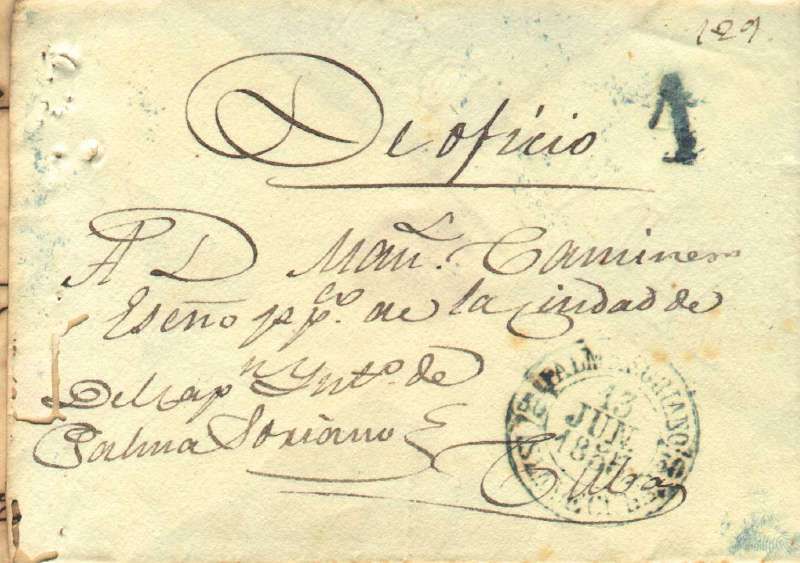 129
De oficio
1
A D Man.l Caminero
Esc.no pp.co de la Ciudad de
Del Cap.n Ynt.o de
Palma Soriano
Cuba
PALMA SORIANO
13
JUN
1857